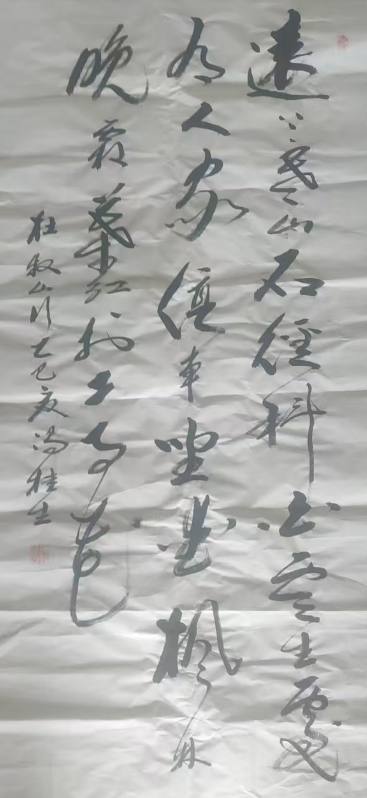 遠上寒山石徑斜白雲生處
有人家停車坐愛楓林
晚霜葉紅於二月花
杜牧山行乙巳夏馮桂生